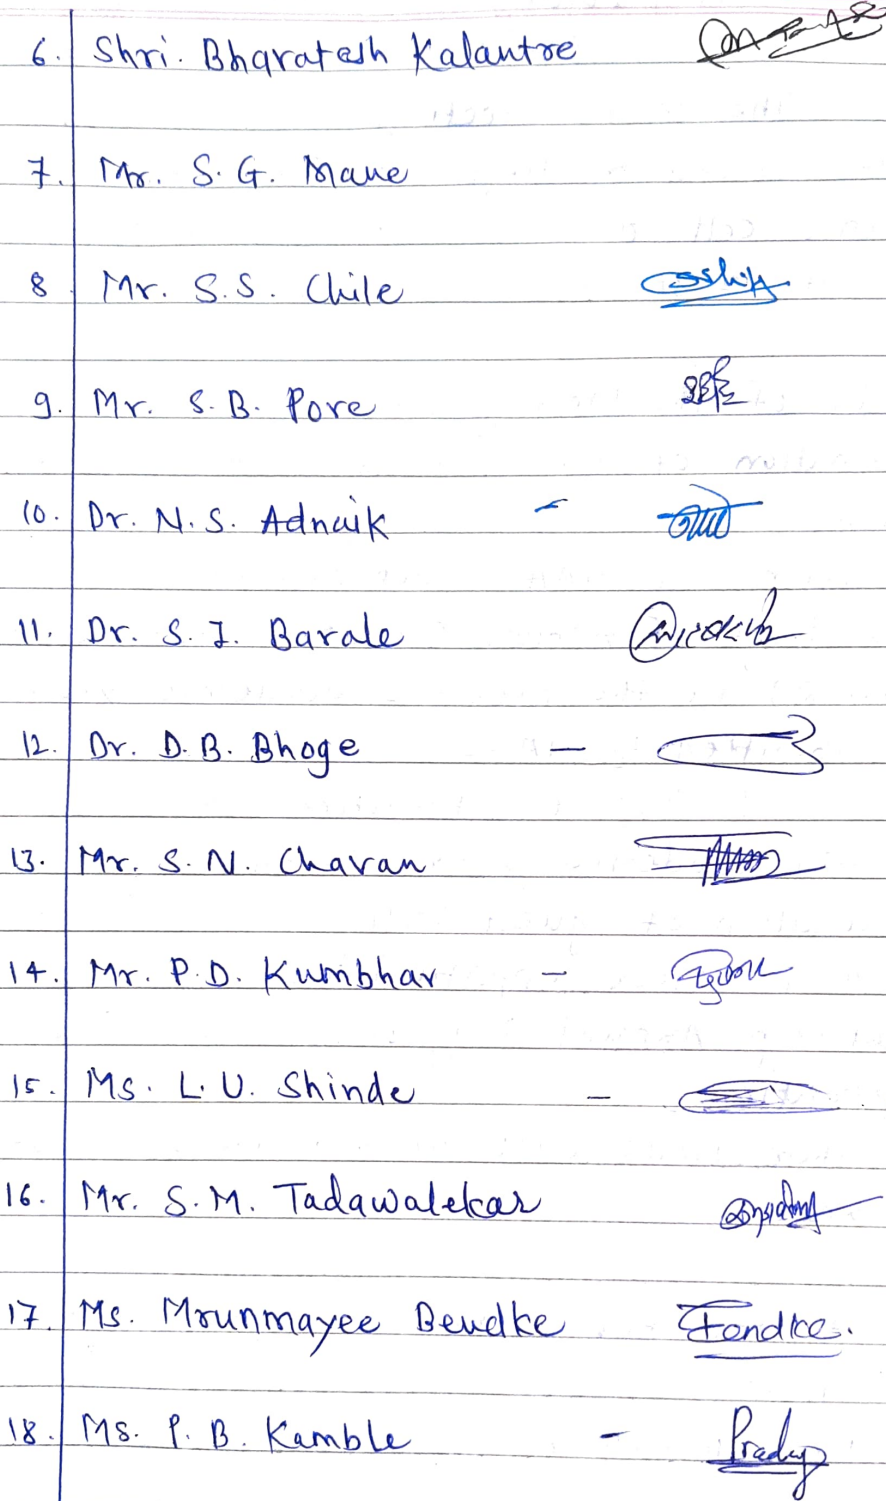 6. Shri. Bharatesh Kalantre
7. Mr. S. G. Mane
8 Mr. S. S. Chile
9. Mr. S. B. Pore
10. Dr. N. S. Adnaik -
11. Dr. S. J. Barale
12. Dr. D. B. Bhoge -
13. Mr. S. N. Chavan
14. Mr. P. D. Kumbhar -
15. Ms. L. U. Shinde -
16. Mr. S. M. Tadawalekar
17. Ms. Mrunmayee Bendke
18. Ms. P. B. Kamble -